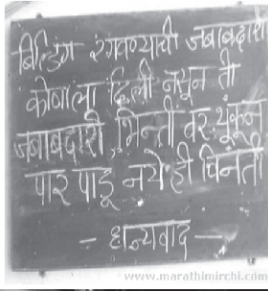 बिल्डिंग रंगवण्याची जबाबदारी
कोणाला दिली नसून ती
जबाबदारी भिन्तीवर थुंकून
पार पाडू नये ही विनंती
- धन्यवाद -
www.marathimirchi.com